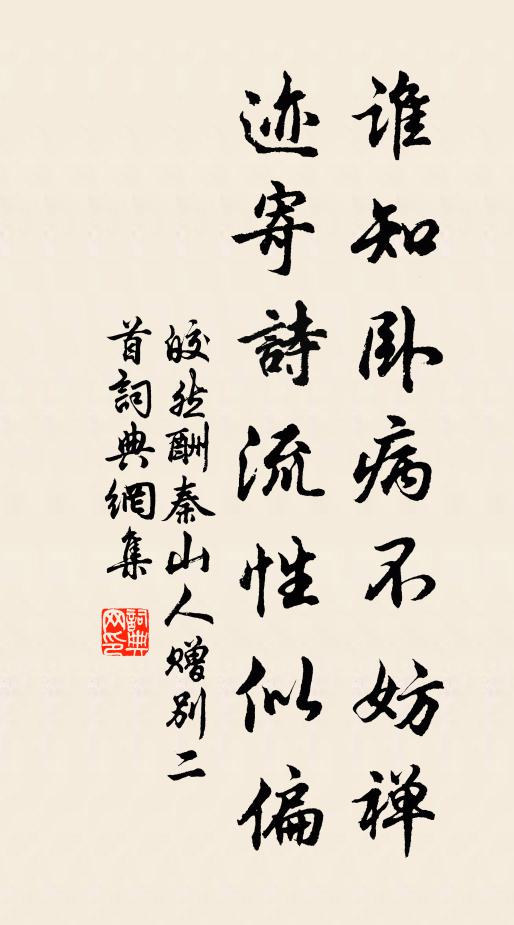 谁知卧病不妨禅
迹寄詩流性似偏
皎然酬秦山人赠别二
首詞典網集
詞典網印